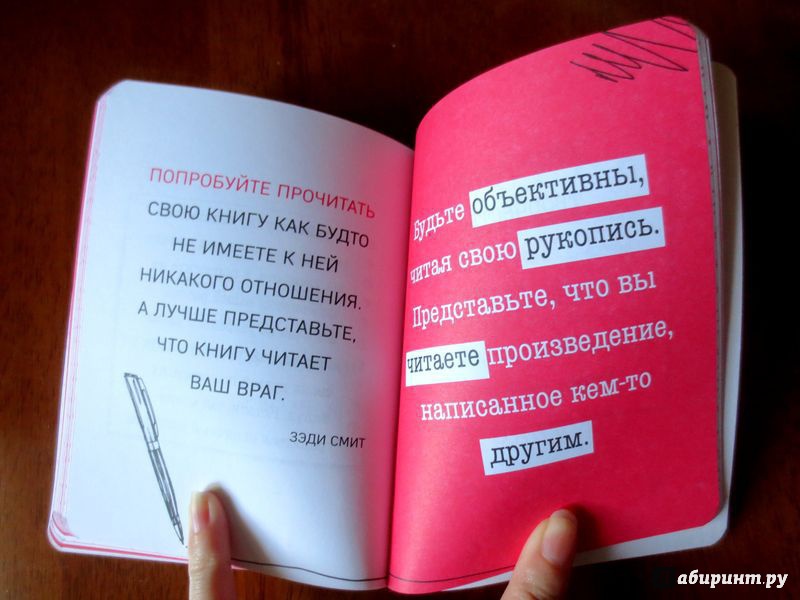 ПОПРОБУЙТЕ ПРОЧИТАТЬ
СВОЮ КНИГУ КАК БУДТО
НЕ ИМЕЕТЕ К НЕЙ
НИКАКОГО ОТНОШЕНИЯ.
А ЛУЧШЕ ПРЕДСТАВЬТЕ,
ЧТО КНИГУ ЧИТАЕТ
ВАШ ВРАГ.
ЗЭДИ СМИТ
Будьте объективны,
читая свою рукопись.
Представьте, что вы
читаете произведение,
написанное кем-то
другим.
абиринт.ру